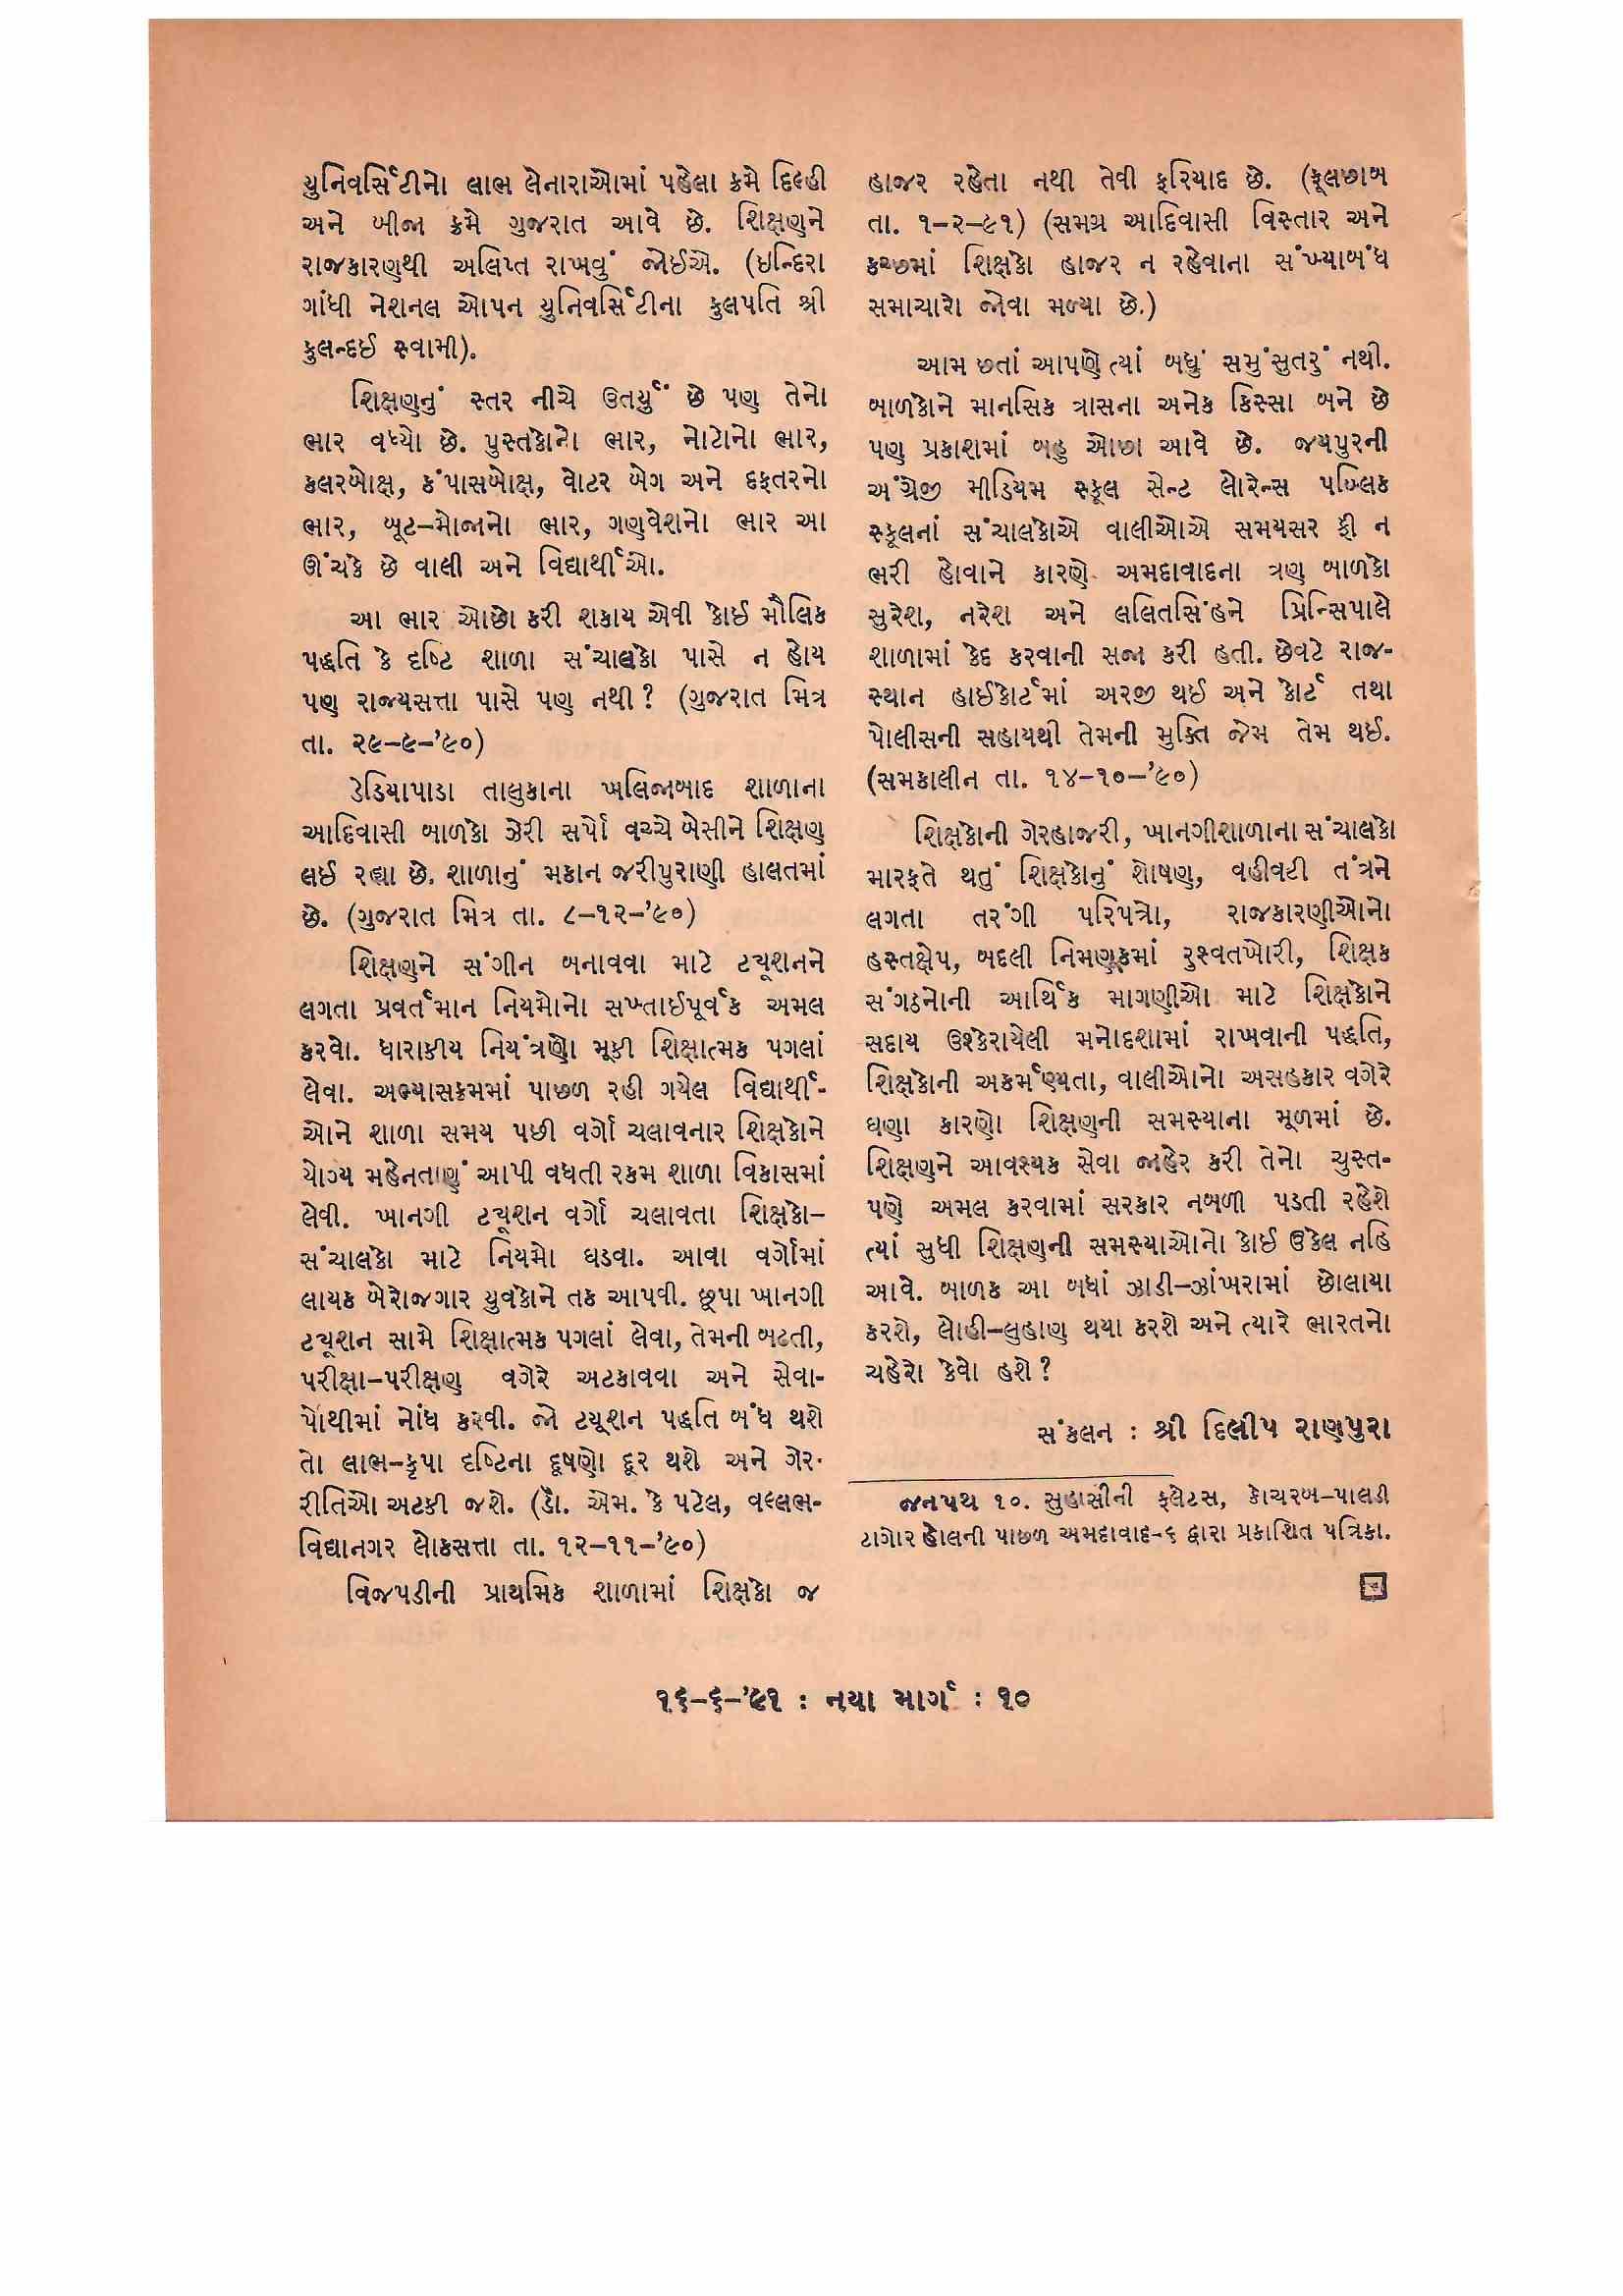 યુનિવર્સિટીનો લાભ લેનારાઓમાં પહેલા ક્રમે દિલ્હી
અને બીજા ક્રમે ગુજરાત આવે છે. શિક્ષણને
રાજકારણથી અલિપ્ત રાખવું જોઈએ. (ઇન્દિરા
ગાંધી નેશનલ ઓપન યુનિવર્સિટીના કુલપતિ શ્રી
કુલન્દઈ સ્વામી).
શિક્ષણનું સ્તર નીચે ઉતર્યું છે પણ તેનો
ભાર વધ્યો છે. પુસ્તકોનો ભાર, નોટોનો ભાર,
કલરબોક્ષ, કંપાસબોક્ષ, વોટર બેગ અને દફતરનો
ભાર, બૂટ-મોજાનો ભાર, ગણવેશનો ભાર આ
ઊંચકે છે વાલી અને વિદ્યાર્થીઓ.
આ ભાર ઓછો કરી શકાય એવી કોઈ મૌલિક
પદ્ધતિ કે દૃષ્ટિ શાળા સંચાલકો પાસે ન હોય
પણ રાજ્યસત્તા પાસે પણ નથી? (ગુજરાત મિત્ર
તા. ૨૯-૯-'૯૦)
ડેડિયાપાડા તાલુકાના ખલિજાબાદ શાળાના
આદિવાસી બાળકો ઝેરી સર્પો વચ્ચે બેસીને શિક્ષણ
લઈ રહ્યા છે. શાળાનું મકાન જરીપુરાણી હાલતમાં
છે. (ગુજરાત મિત્ર તા. ૮-૧૨-'૯૦)
શિક્ષણને સંગીન બનાવવા માટે ટ્યૂશનને
લગતા પ્રવર્તમાન નિયમોનો સખ્તાઈપૂર્વક અમલ
કરવો. ધારાકીય નિયંત્રણો મૂકી શિક્ષાત્મક પગલાં
લેવા. અભ્યાસક્રમમાં પાછળ રહી ગયેલ વિદ્યાર્થી-
ઓને શાળા સમય પછી વર્ગો ચલાવનાર શિક્ષકોને
યોગ્ય મહેનતાણું આપી વધતી રકમ શાળા વિકાસમાં
લેવી. ખાનગી ટ્યૂશન વર્ગો ચલાવતા શિક્ષકો-
સંચાલકો માટે નિયમો ઘડવા. આવા વર્ગોમાં
લાયક બેરોજગાર યુવકોને તક આપવી. છૂપા ખાનગી
ટ્યૂશન સામે શિક્ષાત્મક પગલાં લેવા, તેમની બઢતી,
પરીક્ષા-પરીક્ષણ વગેરે અટકાવવા અને સેવા-
પોથીમાં નોંધ કરવી. જો ટયૂશન પદ્ધતિ બંધ થશે
તો લાભ-કૃપા દૃષ્ટિના દૂષણો દૂર થશે અને ગેર-
રીતિઓ અટકી જશે. (ડૉ. એમ. કે પટેલ, વલ્લભ-
વિદ્યાનગર લોકસત્તા તા. ૧૨-૧૧-'૯૦)
વિજપડીની પ્રાથમિક શાળામાં શિક્ષકો જ
હાજર રહેતા નથી તેવી ફરિયાદ છે. (ફૂલછાબ
તા. ૧-૨-૯૧) (સમગ્ર આદિવાસી વિસ્તાર અને
કચ્છમાં શિક્ષકો હાજર ન રહેવાના સંખ્યાબંધ
સમાચારો જોવા મળ્યા છે.)
આમ છતાં આપણે ત્યાં બધું સમુંસુતરું નથી.
બાળકોને માનસિક ત્રાસના અનેક કિસ્સા બને છે
પણ પ્રકાશમાં બહુ ઓછા આવે છે. જયપુરની
અંગ્રેજી મીડિયમ સ્કૂલ સેન્ટ લોરેન્સ પબ્લિક
સ્કૂલનાં સંચાલકોએ વાલીઓએ સમયસર ફી ન
ભરી હોવાને કારણે અમદાવાદના ત્રણ બાળકો
સુરેશ, નરેશ અને લલિતસિંહને પ્રિન્સિપાલે
શાળામાં કેદ કરવાની સજા કરી હતી. છેવટે રાજ-
સ્થાન હાઈકોર્ટમાં અરજી થઈ અને કોર્ટ તથા
પોલીસની સહાયથી તેમની મુક્તિ જેમ તેમ થઈ.
(સમકાલીન તા. ૧૪-૧૦-'૯૦)
શિક્ષકોની ગેરહાજરી, ખાનગીશાળાના સંચાલકો
મારફતે થતું શિક્ષકોનું શોષણ, વહીવટી તંત્રને
લગતા તરંગી પરિપત્રો, રાજકારણીઓનો
હસ્તક્ષેપ, બદલી નિમણૂકમાં રુશ્વતખોરી, શિક્ષક
સંગઠનોની આર્થિક માગણીઓ માટે શિક્ષકોને
સદાય ઉશ્કેરાયેલી મનોદશામાં રાખવાની પદ્ધતિ,
શિક્ષકોની અકર્મણ્યતા, વાલીઓનો અસહકાર વગેરે
ઘણા કારણો શિક્ષણની સમસ્યાના મૂળમાં છે.
શિક્ષણને આવશ્યક સેવા જાહેર કરી તેનો ચુસ્ત-
પણે અમલ કરવામાં સરકાર નબળી પડતી રહેશે
ત્યાં સુધી શિક્ષણની સમસ્યાઓનો કોઈ ઉકેલ નહિ
આવે. બાળક આ બધાં ઝાડી-ઝાંખરામાં છોલાયા
કરશે, લોહી-લુહાણ થયા કરશે અને ત્યારે ભારતનો
ચહેરો કેવો હશે?
સંકલન : શ્રી દિલીપ રાણપુરા
જનપથ ૧૦. સુહાસીની ફ્લેટસ, કોચરબ-પાલડી
ટાગોર હોલની પાછળ અમદાવાદ-૬ દ્વારા પ્રકાશિત પત્રિકા.
૧૬-૬-'૯૧ : નયા માર્ગ : ૧૦